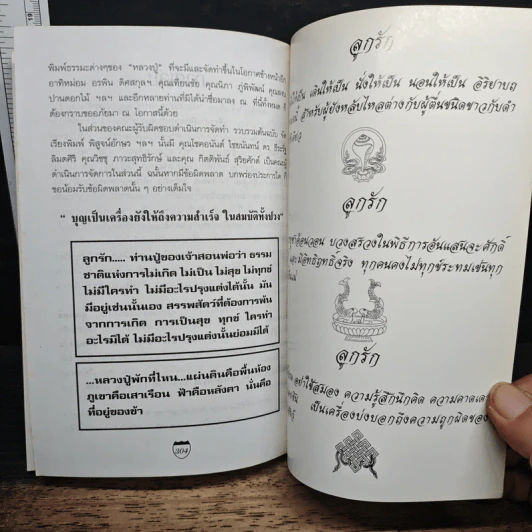 พิมพ์ธรรมะต่างๆของ "หลวงปู่" ที่จะมีและจัดทำขึ้นในโอกาศข้างหน้านี้
อาทิหม่อม อรพิน ดิศสกุลฯ คุณเทียนชัย คุณนิภา ภู่พิพัฒน์
ปานดอกไม้ ฯลฯ และอีกหลายท่านที่มิได้นำชื่อมาลง ณ ที่นี้ทั้งหมด
ต้องกราบขออภัยมา ณ โอกาสนี้ด้วย
ในส่วนของคณะผู้รับผิดชอบดำเนินการจัดทำ รวบรวมต้นฉบับ
เรียงพิมพ์ พิสูจน์อักษร ฯลฯ นั้นมี คุณโชคอนันต์ ไชยนันทน์ ดร.
ลิมตศิริ คุณวิชชุ ภาวะสุทธิรักษ์ และคุณ กิตติพันธ์ สุริยศักดิ์ เป็นคณะ
ดำเนินการจัดการในส่วนนี้ ฉนั้นหากมีข้อผิดพลาด บกพร่องประการใด
ขอน้อมรับข้อผิดพลาดนั้น ๆ อย่างเต็มใจ
" บุญเป็นเครื่องยังให้ถึงความสำเร็จ ในสมบัติทั้งปวง"
ลูกรัก..... ท่านปู่ของเจ้าสอนพ่อว่า ธรรม
ชาติแห่งการไม่เกิด ไม่เป็น ไม่สุข ไม่ทุกข์
ไม่มีใครทำ ไม่มีอะไรปรุงแต่งได้นั้น มัน
มีอยู่เช่นนั้นเอง สรรพสัตว์ที่ต้องการพ้น
จากการเกิด การเป็นสุข ทุกข์ ใครทำ
อะไรมิได้ ไม่มีอะไรปรุงแต่งนั้นย่อมมีได้
...หลวงปู่พักที่ไหน...แผ่นดินคือพื้นห้อง
ภูเขาคือเสาเรือน ฟ้าคือหลังคา นั่นคือ
ที่อยู่ของข้า
304
ลูกรัก
เดินให้เป็น นั่งให้เป็น นอนให้เป็น อิริยาบถ
สำหรับผู้ยังหลับใหลต่างกับผู้ตื่นชนิดขาวกับดำ
ลูกรัก
อ้อนวอน บวงสรวงในพิธีการอันแสนจะศักดิ์
มีอิทธิฤทธิ์จริง ทุกคนคงไม่ทุกข์ระทมเช่นทุก
ลูกรัก
อย่าใช้สมอง ความรู้สึกนึกคิด ความคาดเดา
เป็นเครื่องบ่งบอกถึงความถูกผิดของ